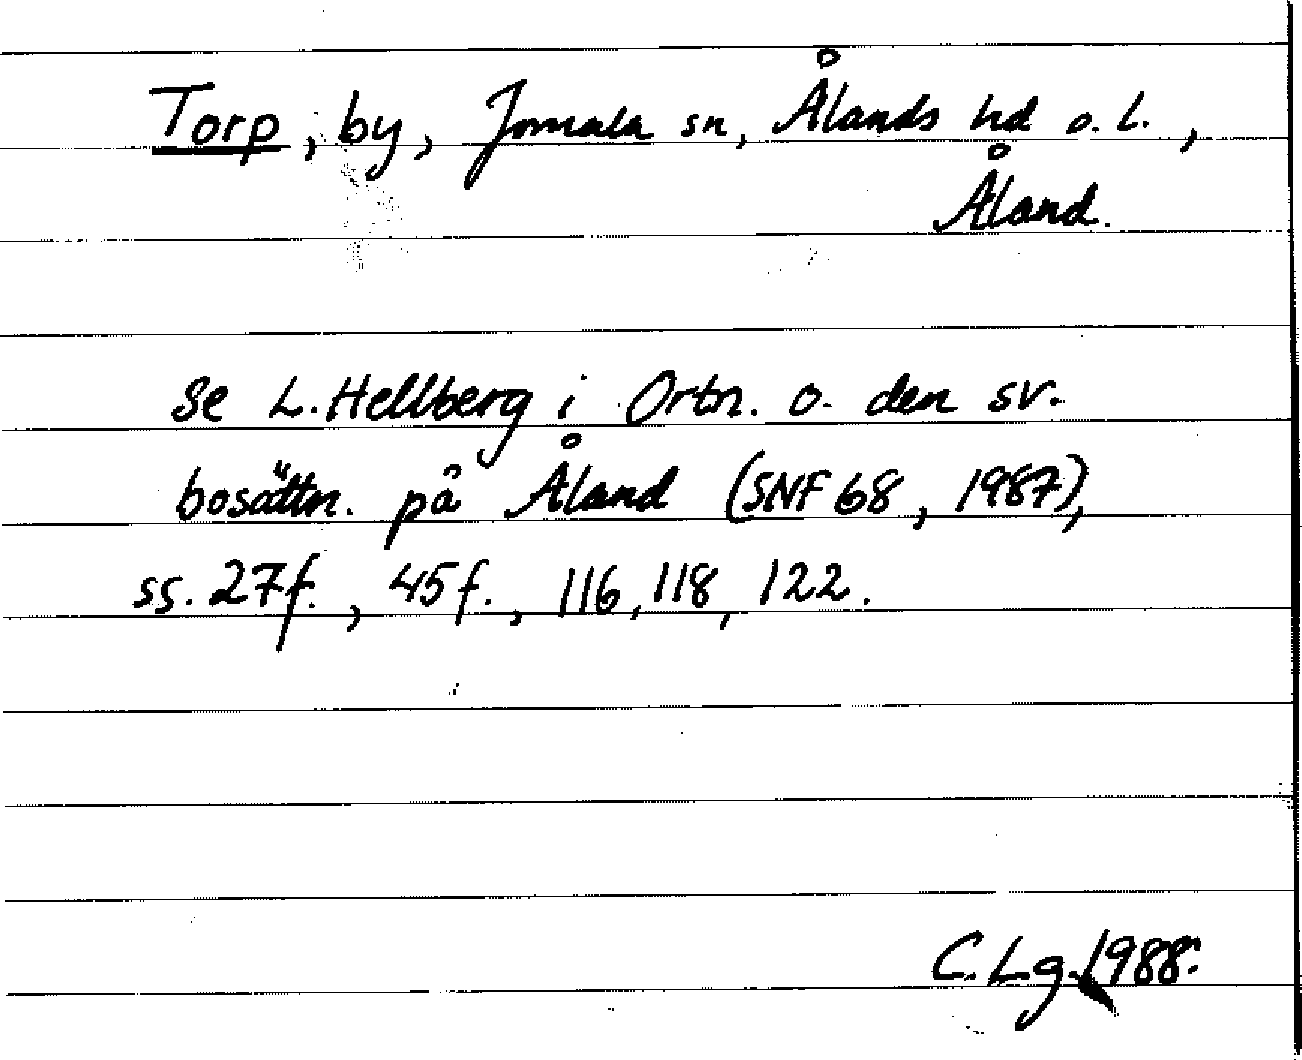 Torp, by, Jomala sn, Ålands hd o. l.,
Åland.
Se L. Hellberg i Ortn. o. den sv.
bosättn. på Åland (SNF 68, 1987),
ss. 27f., 45f., 116, 118, 122.
C. Lg. 1988.